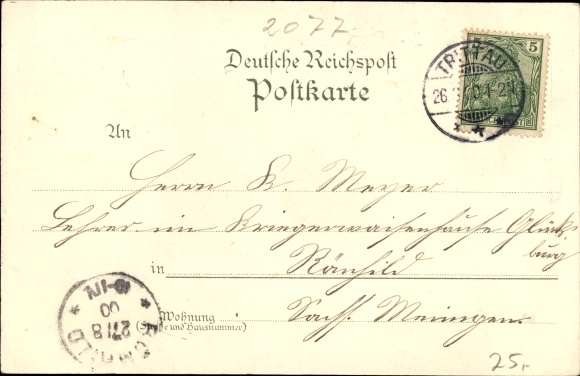 2077,-
Deutsche Reichspost
Postkarte
5
TRITTAU
An
Herrn K. Meyer
Lehrer im Kriegerwaisenhause Glücks-
burg
in Römhild
Wohnung
(Straße und Hausnummer)
Sachs. Meiningen.
27 8
00
25,-